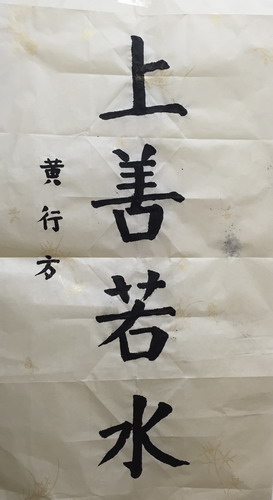 上善若水
黄行方